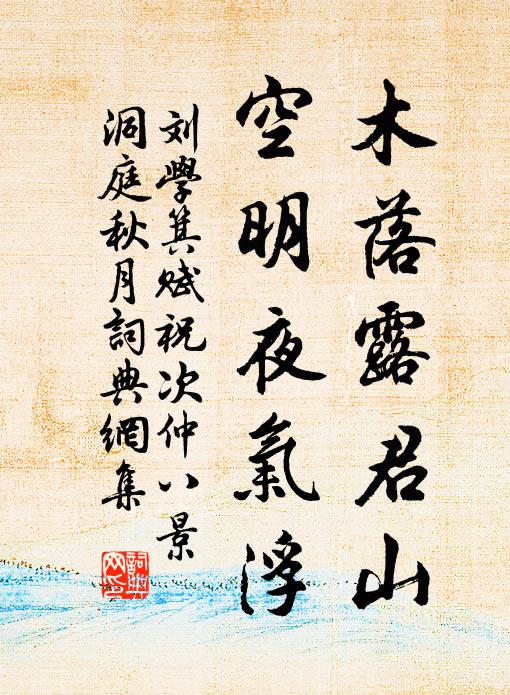 木落露君山
空明夜氣浮
刘學箕赋祝次仲八景
洞庭秋月詞典網集